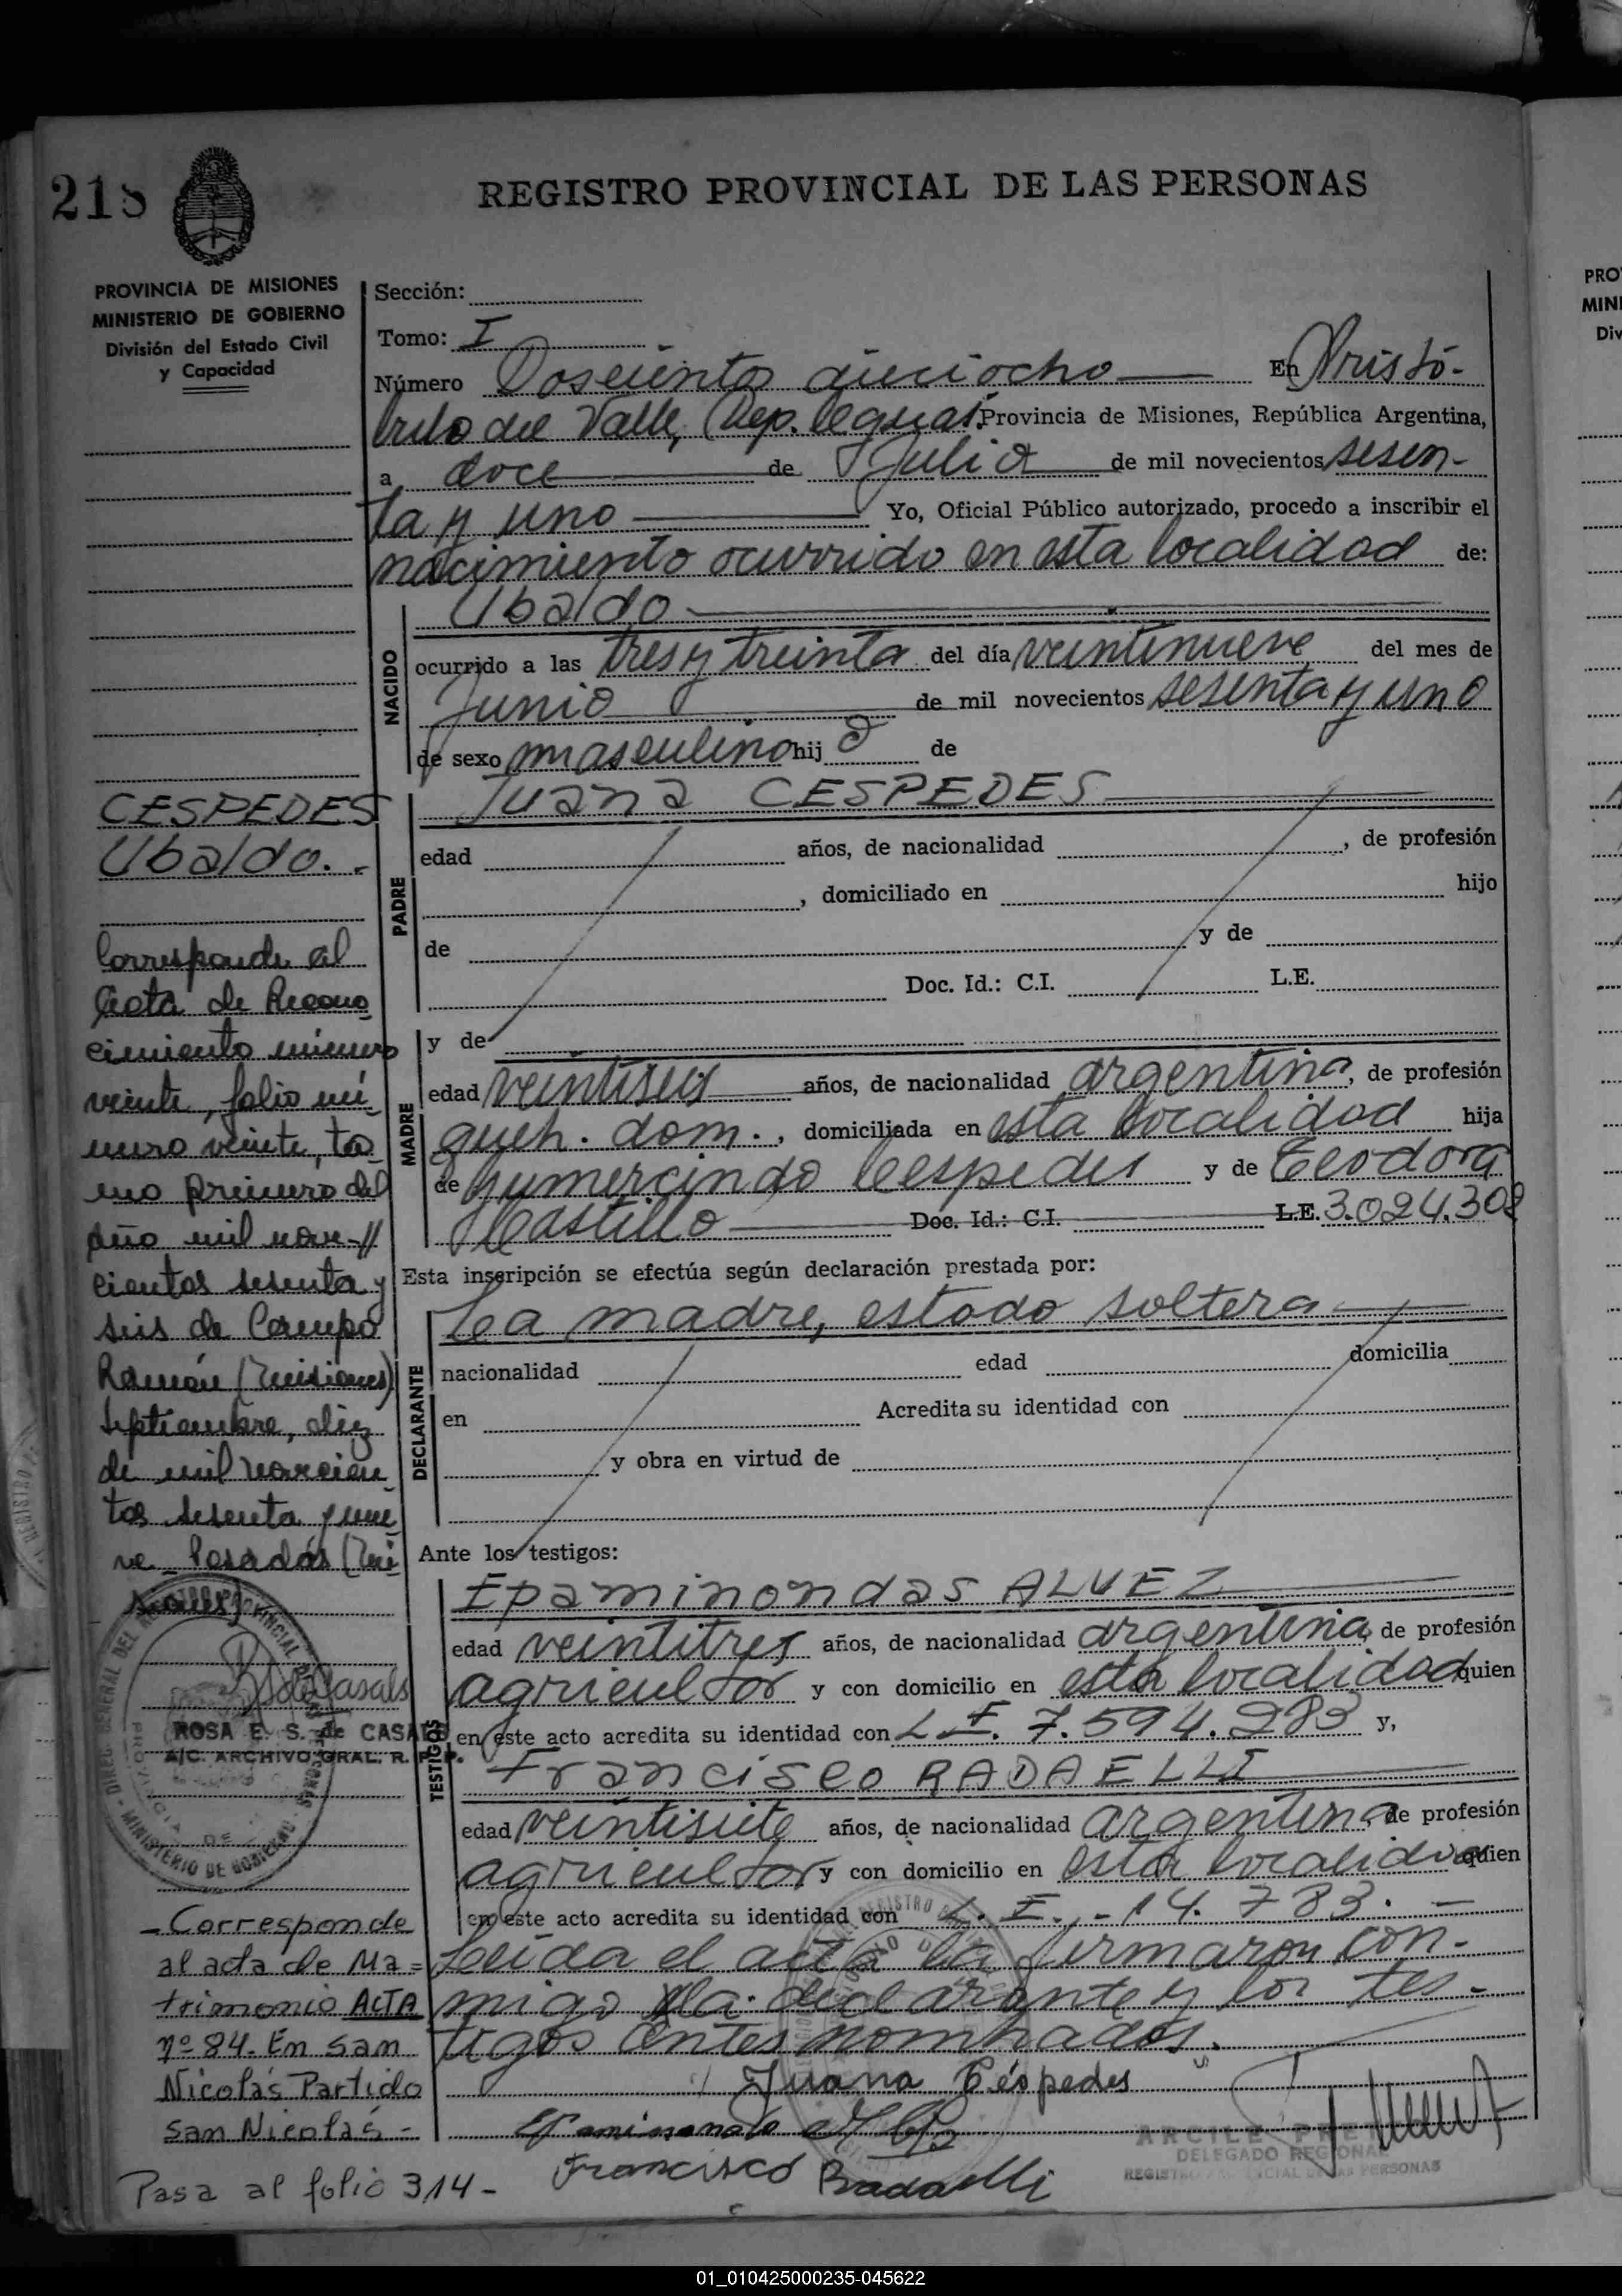 218
REGISTRO PROVINCIAL DE LAS PERSONAS
PROVINCIA DE MISIONES
MINISTERIO DE GOBIERNO
División del Estado Civil
y Capacidad
Sección:
Tomo: I
Número Doscientos dieciocho En Aristó-
bulo del Valle, Dep. Cainguás. Provincia de Misiones, República Argentina,
a doce de Julio de mil novecientos sesen-
ta y uno Yo, Oficial Público autorizado, procedo a inscribir el
nacimiento ocurrido en esta localidad de:
NACIDO
Ubaldo
ocurrido a las tres y treinta del día veintinueve del mes de
Junio de mil novecientos sesenta y uno
de sexo masculino hijo de
PADRE
Juana CESPEDES
edad años, de nacionalidad , de profesión
, domiciliado en hijo
de y de
Doc. Id.: C.I. L.E.
MADRE
y de
edad veintiseis años, de nacionalidad argentina, de profesión
queh. dom., domiciliada en esta localidad hija
de Gumercindo Cespedes y de Teodora
Castillo Doc. Id.: C.I. L.E. 3.024.308
Esta inscripción se efectúa según declaración prestada por:
DECLARANTE
La madre, estado soltera
nacionalidad edad domicilia
en Acredita su identidad con
y obra en virtud de
Ante los testigos:
TESTIGOS
Epaminondas ALVEZ
edad veintitres años, de nacionalidad argentina, de profesión
agricultor y con domicilio en esta localidad quien
en este acto acredita su identidad con L.E. 7.594.283 y,
Francisco RADAELLI
edad veintisiete años, de nacionalidad argentina, de profesión
agricultor y con domicilio en esta localidad quien
en este acto acredita su identidad con L.E.-14.783.-
Leída el acta la firmaron con-
migo la declarante y los tes-
tigos antes nombrados.
Juana Céspedes
Francisco Radaelli
DELEGADO REGIONAL
CESPEDES
Ubaldo.-
Corresponde al
Acta de Recono
cimiento número
veinte, folio nú-
mero veinte, to-
mo primero del
año mil nove-//
cientos sesenta y
seis de Campo
Ramón (Misiones)
Septiembre, diez
de mil novecien
tos sesenta y nue
ve Posadas (Mi
siones)
ROSA E. S. de CASALS
A/C. ARCHIVO GRAL. R. P. P.
- Corresponde
al acta de Ma=
trimonio ACTA
nº 84. En San
Nicolás Partido
San Nicolás -
Pasa al folio 314-
01_010425000235-045622